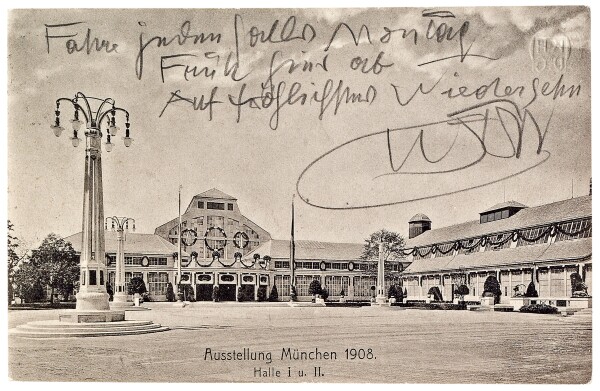 Fahre jeden Falls Montag
Früh hier ab
Auf fröhliches Wiedersehn
Ausstellung München 1908.
Halle I u. II.